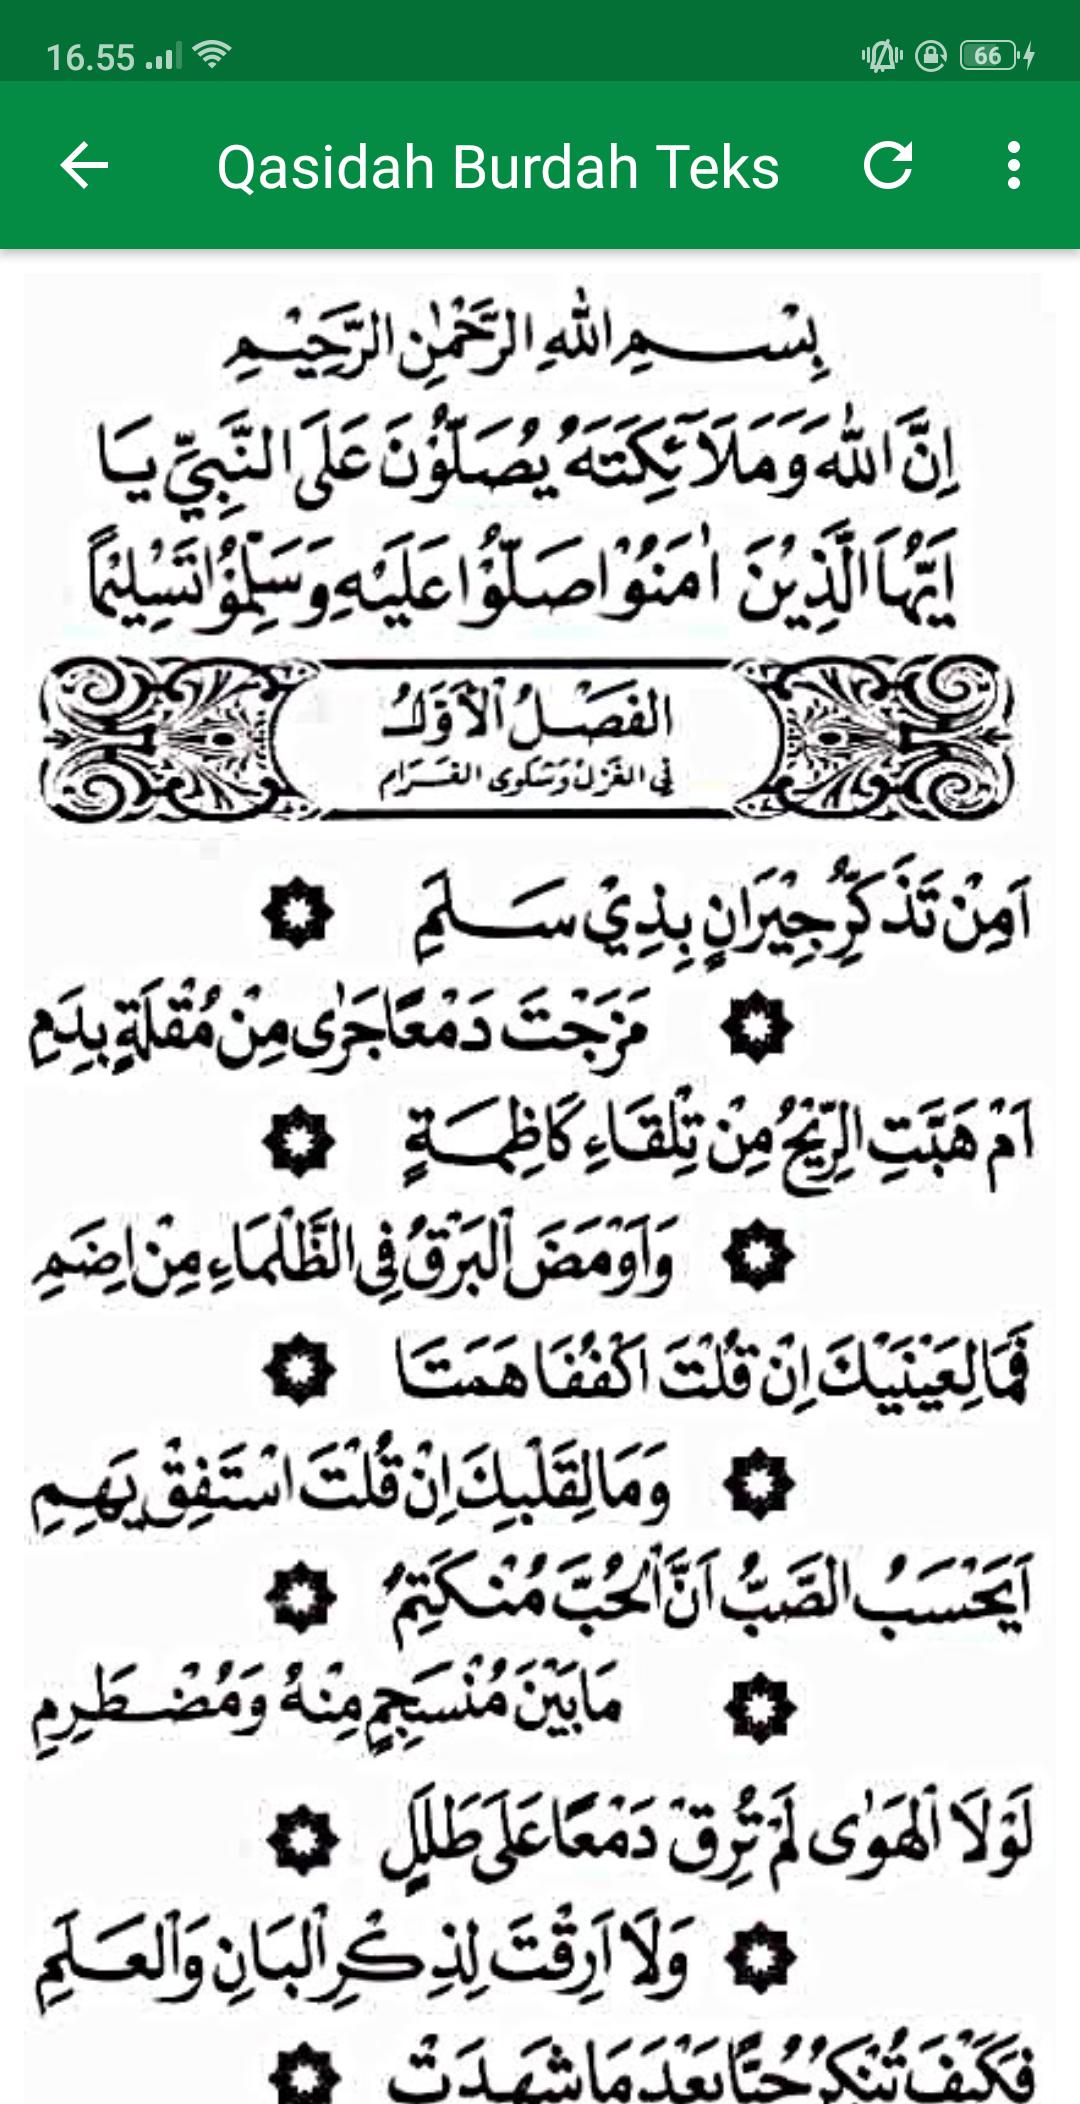 16.55
66
Qasidah Burdah Teks
بِسْمِ اللهِ الرَّحْمٰنِ الرَّحِيْمِ
اِنَّ اللّٰهَ وَمَلَآئِكَتَهُ يُصَلُّوْنَ عَلَى النَّبِيِّ يَا
اَيُّهَا الَّذِيْنَ اٰمَنُوْا صَلُّوْا عَلَيْهِ وَسَلِّمُوْا تَسْلِيْمًا
الفَصْلُ الْاَوَّلُ
فِي الغَزَلْ وَشَكوى الغَرَام
اَمِنْ تَذَكُّرِ جِيْرَانٍ بِذِيْ سَلَمِ
مَزَجْتَ دَمْعًا جَرٰى مِنْ مُقْلَةٍ بِدَمِ
اَمْ هَبَّتِ الرِّيْحُ مِنْ تِلْقَاءِ كَاظِمَةٍ
وَاَوْمَضَ الْبَرْقُ فِي الظَّلْمَاءِ مِنْ اِضَمِ
فَمَا لِعَيْنَيْكَ اِنْ قُلْتَ اكْفُفَا هَمَتَا
وَمَا لِقَلْبِكَ اِنْ قُلْتَ اسْتَفِقْ يَهِمِ
اَيَحْسَبُ الصَّبُّ اَنَّ الْحُبَّ مُنْكَتِمٌ
مَا بَيْنَ مُنْسَجِمٍ مِنْهُ وَمُضْطَرِمِ
لَوْلَا الْهَوٰى لَمْ تُرِقْ دَمْعًا عَلَى طَلَلٍ
وَلَا اَرِقْتَ لِذِكْرِ الْبَانِ وَالْعَلَمِ
فَكَيْفَ تُنْكِرُ حُبًّا بَعْدَ مَا شَهِدَتْ